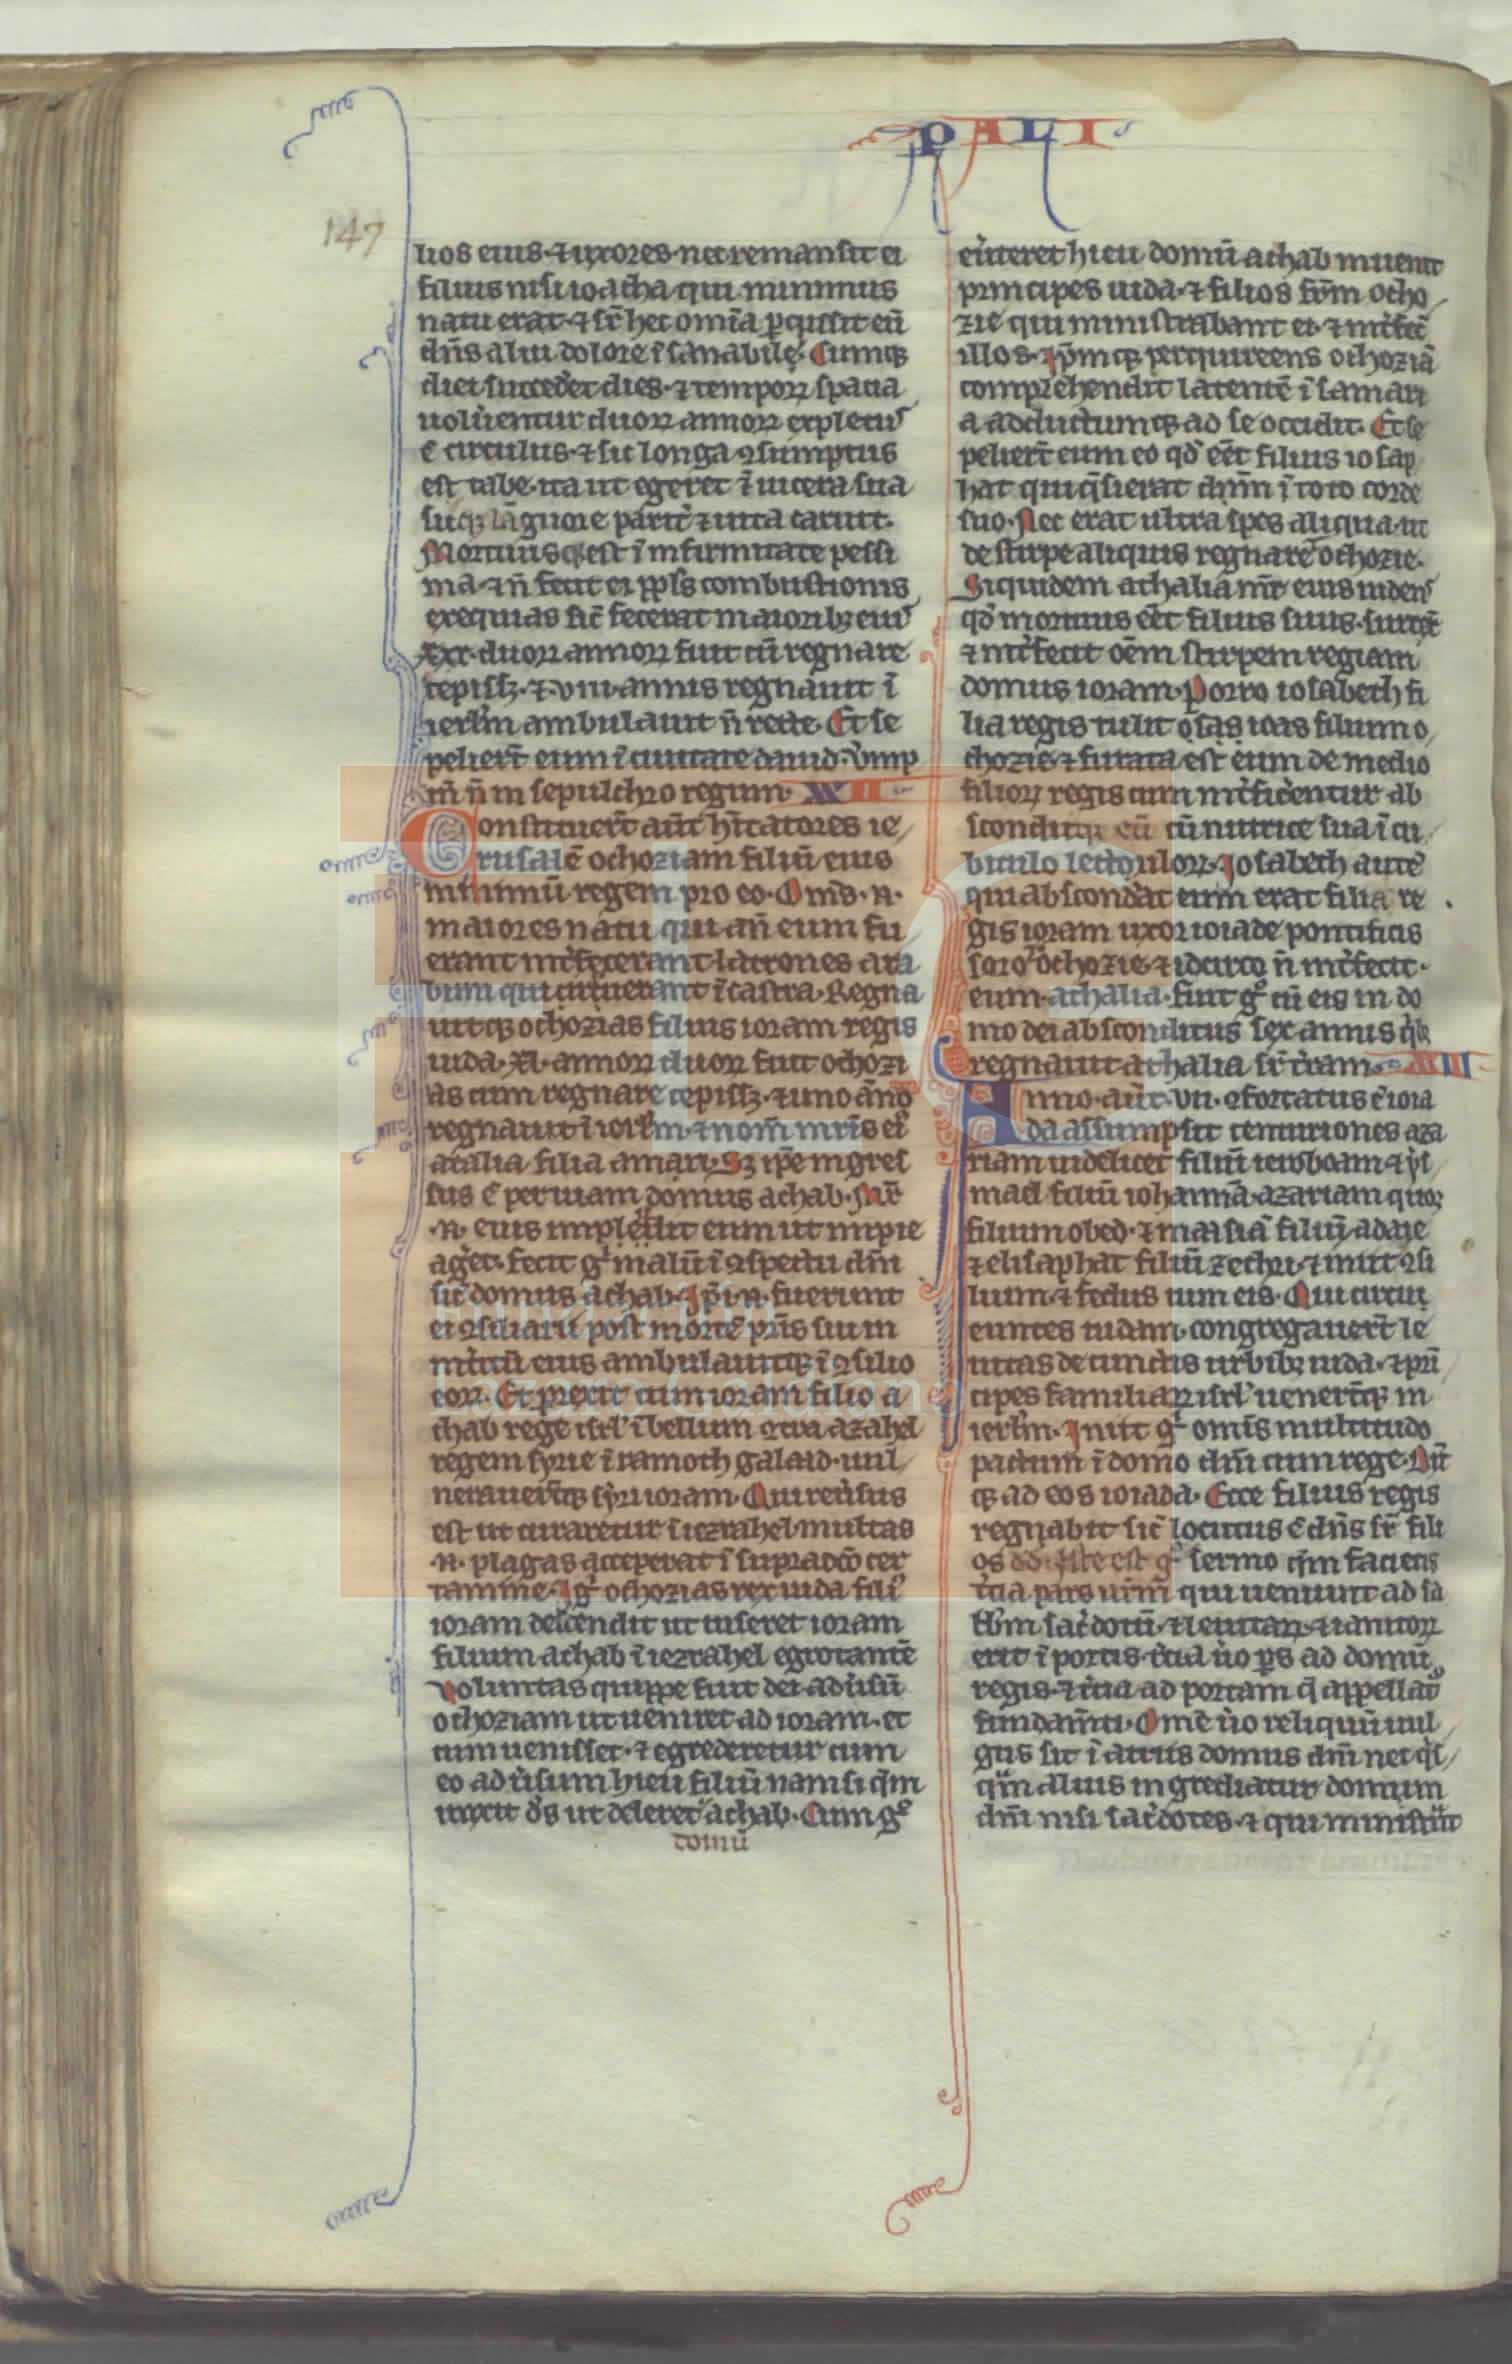 PALI
147
lios eius ⁊ uxores nec remansit ei
filius nisi ioacha qui minimus
natu erat ⁊ sr̄ hec om̄ia p̄cussit eū
dn̄s alui dolore īsanabile. Cumqꝫ
diei succed̓et dies ⁊ tempoꝝ spacia
uolu̓entur duoꝝ annoꝝ expletus
ē circulus ⁊ sic longa ꝯsumptus
est tabe ita ut eger̄et ī uicera sua
suoqꝫ lāguore parit̓ ⁊ uita caruit.
Mortuusqꝫ est ī infirmitate pessi
ma ⁊ n̄ fecit ei ppls̄ combustionis
exequias sic̄ fecerat maioribꝫ eius
xxx. duoꝝ annoꝝ fuit cū regnare
cepissꝫ ⁊ .viii. annis regnauit ī
ierl̄m ambulauit n̄ recte. Et se
pelier̄t eum ī ciuitate dauid. ū̓mp
m̄ n̄ in sepulchro regum. XXII
Constituer̄t aūt hītatores ie
rusalē ochoziam filiū eius
minimū regem pro eo. Oms̄ .n.
maiores natu qui an̄ eum fu
erant int̓fecerant latrones ara
bum qui irruerant ī castra. Regna
uitqꝫ ochozias filius ioram regis
iuda. xl. annoꝝ duoꝝ fuit ochozi
as cum regnare cepissꝫ ⁊ uno āno
regnauit ī ierl̄m ⁊ nom̄ mr̄is ei᷒
atalia filia amari. Sꝫ ip̄e ingres
sus ē per uiam domus achab. Mr̄
.n. eius impulit eum ut impie
ag̓et. fecit gͦ malū ī ꝯspectu dn̄i
sic̄ domus achab. Ip̄i .n. fuerunt
ei ꝯsiliarii post mortē pr̄is sui in
int̓itū eius ambulauitqꝫ ī ꝯsilio
eoꝝ. Et prexit cum ioram filio a
chab rege isrl̄ ī bellum ꝯtra azahel
regem syrie ī ramoth galaad. uul
nerauer̄tqꝫ syri ioram. Qui reu̓sus
est ut curaretur ī iezrahel multas
.n. plagas acceperat ī supradc̄o cer
tamine. Igͥ ochozias rex iuda fili᷒
ioram descendit ut uiseret ioram
filium achab ī iezrahel egrotantē
Voluntas quippe fuit dei adu̓sū
ochoziam ut ueniret ad ioram. et
cum uenisset ⁊ egrederetur cum
eo adu̓sum hieu filiū namsi qm̄
unxit d̓s ut deleret achab. Cum gͦ
domū
eu̓teret hieu domū achab inuenit
principes iuda ⁊ filios fr̄m ocho
zie qui ministrabant ei ⁊ int̓fec̄
illos. Ip̄mqꝫ perquirens ochoziā
comprehendit latentē ī samari
a adductumqꝫ ad se occidit. Et se
pelier̄t eum eo qd̓ eēt filius iosap
hat qui q̄sierat dnm̄ ī toto corde
suo. Nec erat ultra spes aliqua ut
de stirpe aliquis regnaret ochozie.
Siquidem athalia mr̄ eius uidens
qd̓ mortuus eēt filius suus. surrex̄
⁊ int̓fecit oēm stirpem regiam
domus ioram. Porro iosabeth fi
lia regis tulit ioas filium o
chozie ⁊ furata est eum de medio
filioꝝ regis cum int̓ficerentur ab
sconditqꝫ eū cū nutrice sua ī cu
biculo lectuloꝝ. Iosabeth autē
qui abscond̓at eum erat filia re
gis ioram uxor ioiade pontificis
soror ochozie ⁊ idcirco n̄ int̓fecit
eum athalia. fuit gͦ cū eis in do
mo dei absconditus sex annis qͥbꝫ
regnauit athalia sr̄ t̓ram. XXIII
Anno aūt .vii. ꝯfortatus ē ioia
da assumpsit centuriones aza
riam uidelicet filiū ieroboam ⁊ ys
mael filiū iohannā. azariam quoqꝫ
filium obed. ⁊ maasiā filiū adaie
⁊ elisaphat filiū zechri. ⁊ iniit ꝯsi
lium ⁊ fedus cum eis. Qui circu
euntes iudam. congregauer̄t le
uitas de cunctis urbibꝫ iuda. ⁊ prī
cipes familiaꝝ isrl̄ uenerūtqꝫ in
ierl̄m. Iniit gͦ omīs multitudo
pactum ī domo dn̄i cum rege. Dix̄
qꝫ ad eos ioiada. Ecce filius regis
regnabit sic̄ locutus ē dn̄s sr̄ fili
os dd̄. Iste est gͦ sermo qm̄ facietis
t̓cia pars ur̄m qui ueniunt ad sa
bb̄m sac̓dotū ⁊ leuitaꝝ ⁊ ianitoꝝ
erit ī portis. t̓cia u̓o ps̄ ad domū
regis. ⁊ t̓cia ad portam q̄ appellat᷒
fundam̄ti. Ome u̓o reliquū uul
gus sit ī atriis domus dn̄i nec qͥs
qͣm alius ingrediatur domum
dn̄i nisi sac̓dotes. ⁊ qui ministrāt